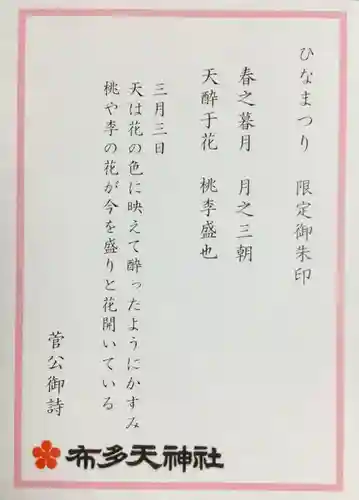 ひなまつり　限定御朱印
春之暮月　月之三朝
天酔于花　桃李盛也
三月三日
天は花の色に映えて酔ったようにかすみ
桃や李の花が今を盛りと花開いている
菅公御詩
布多天神社